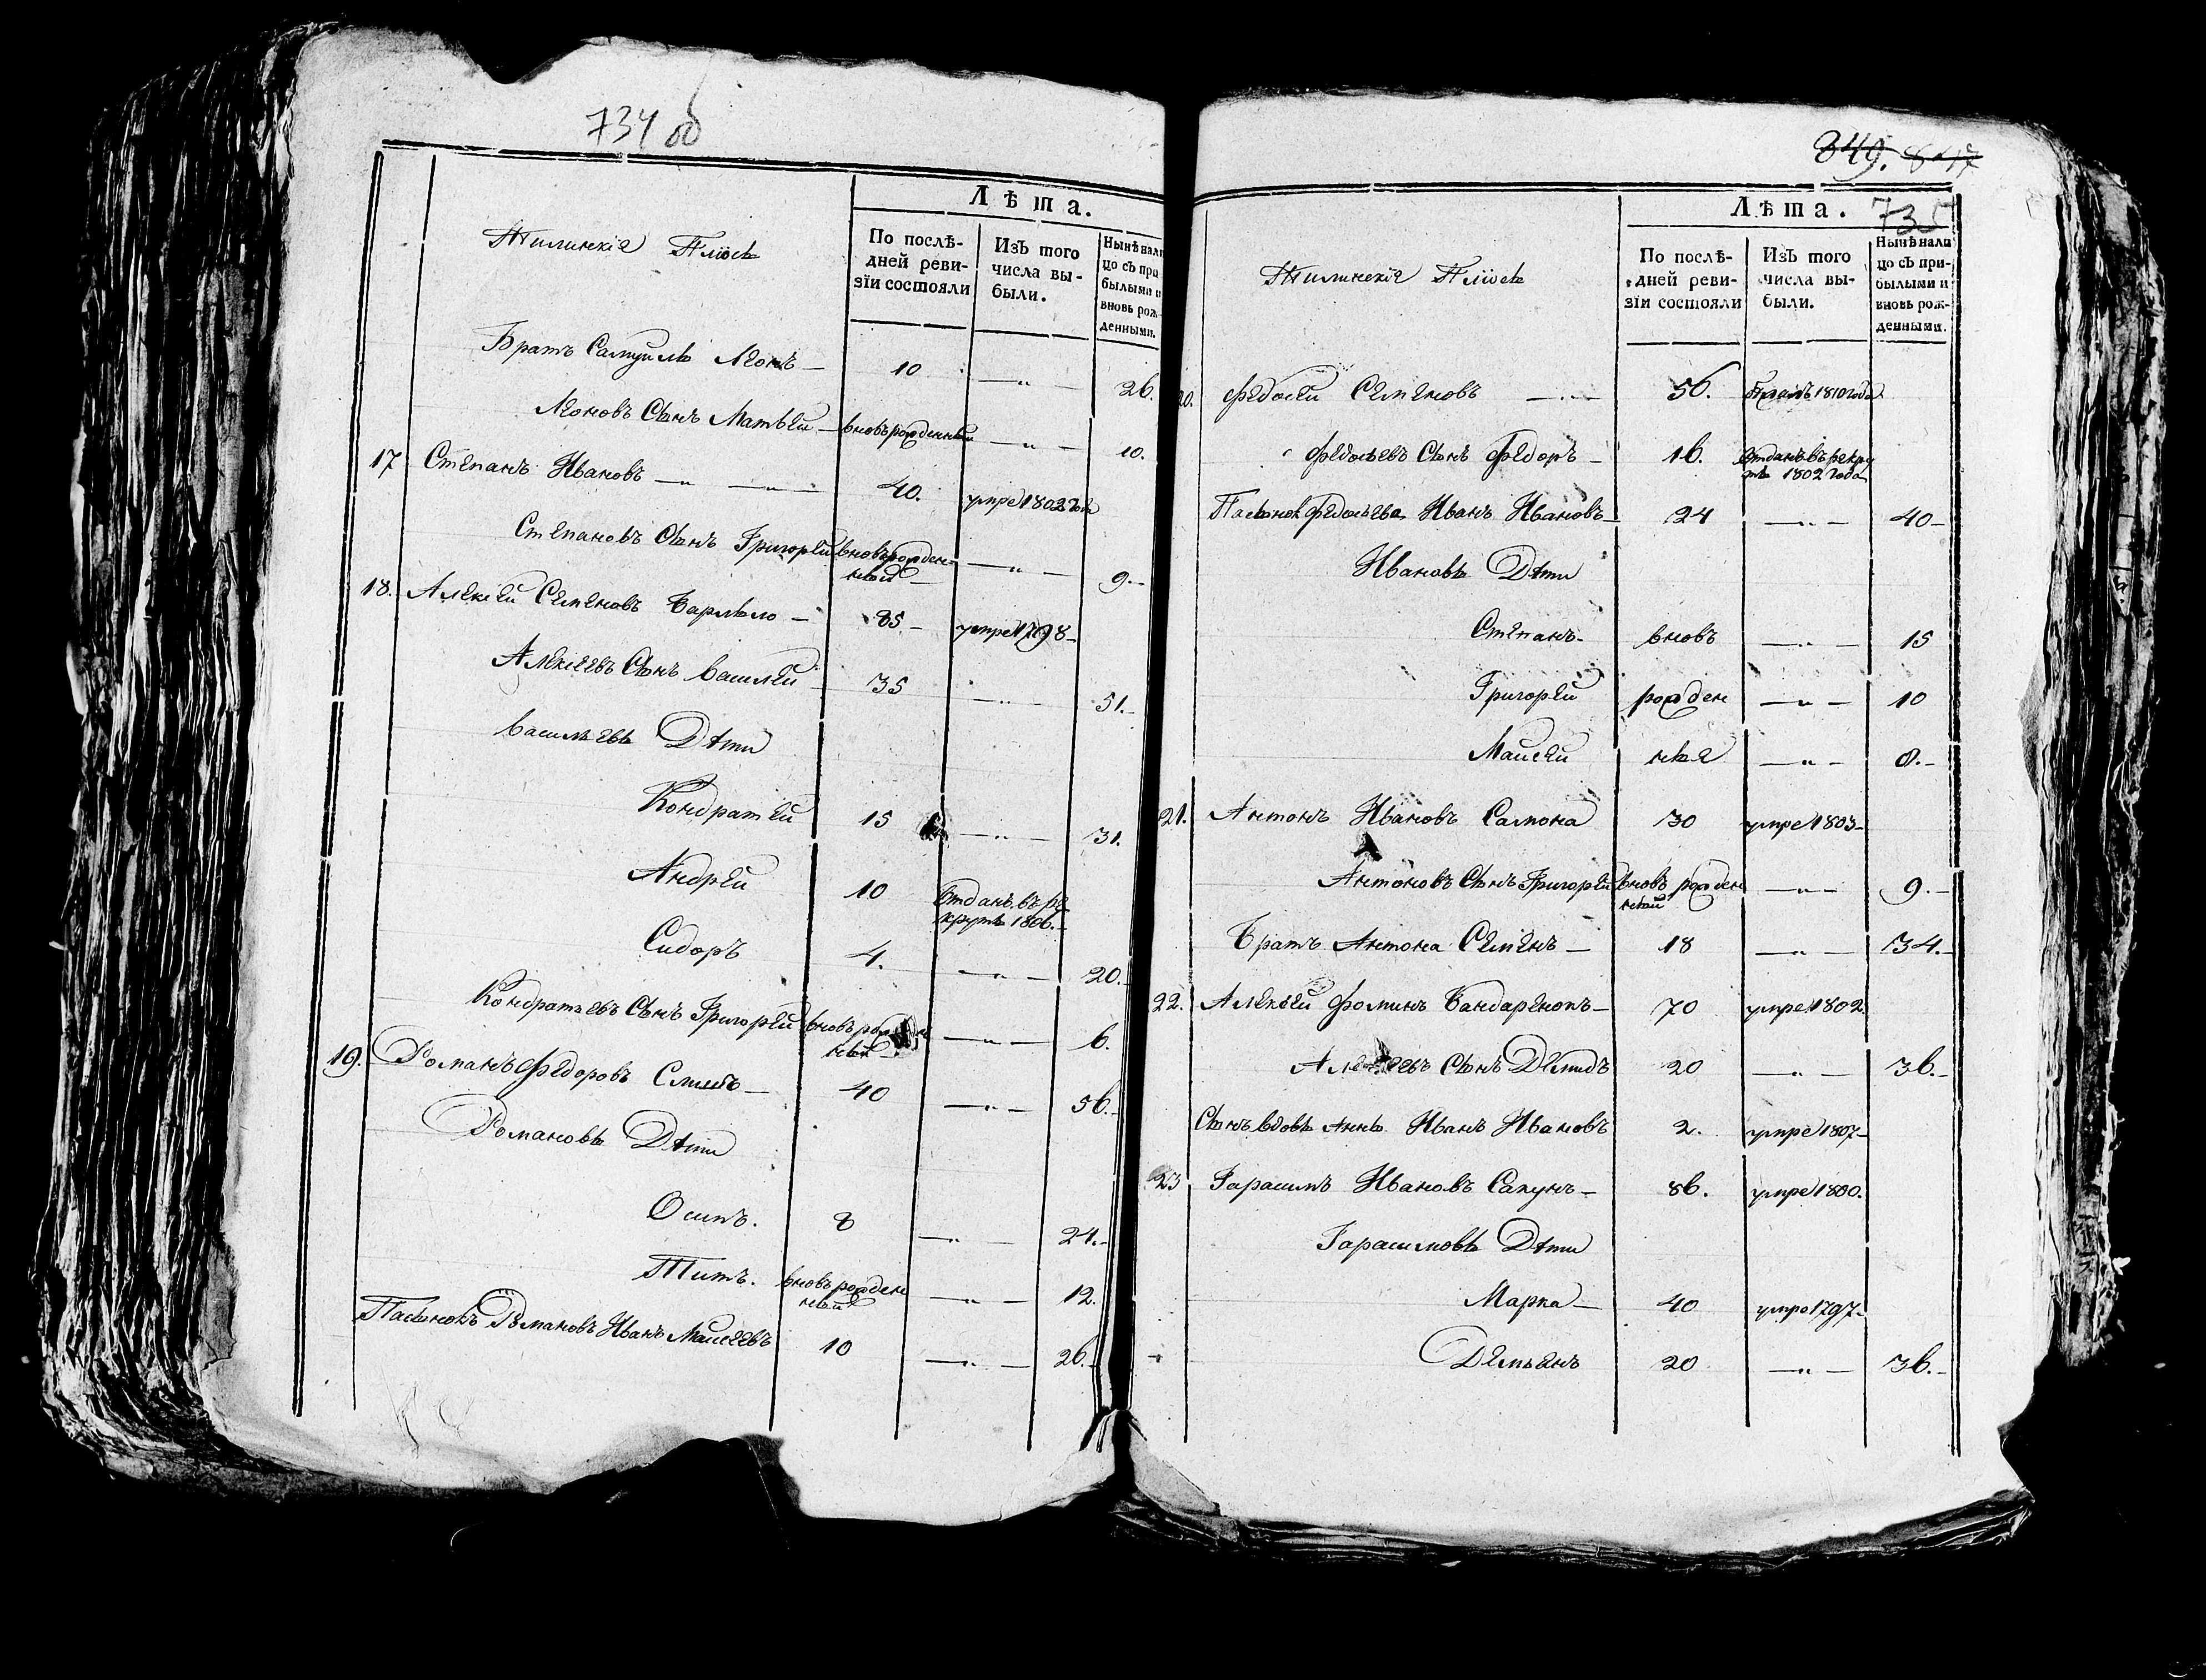 734 об
Лѣта.
По послѣ-
дней реви-
зїи состояли
Изъ того
числа вы-
были.
Нынѣ нали
цо съ при
былыми и
вновь рож-
денными.
Братъ Самуила Леонъ — 10 — " — 26.
Леоновъ Сынъ Матвѣй — вновь рожденный — " — 10.
17 Степанъ Ивановъ — " — 40. умре 1802 года
Степановъ Сынъ Григорей вновь рожден
ный — " — 9.
18. Алексей Семеновъ — 85. — умре 1798 —
Алексеевъ Сынъ Василей 35 — " — 51.
Васильевы Дѣти
Кондратей 15 — " — 31.
Андрей 10 Отданъ въ ре
круты 1806.
Сидоръ 4. — " — 20.
Кондратьевъ Сынъ Григорей вновь рожден
ный — " — 6.
19. Романъ Федоровъ — 40 — " — 56.
Романовы Дѣти
Осипъ. 8 — " — 24.
Титъ. вновь рожден
ный — " — 12.
Пасынокъ Романовъ Иванъ Мапсеевъ 10 — " — 26.
849. 847
735
Лѣта.
По послѣ-
дней реви-
зїи состояли
Изъ того
числа вы-
были.
Нынѣ нали
цо съ при-
былыми и
вновь рож-
денными.
20. Федосей Семеновъ — 56. 1810 года
Федосѣевъ Сынъ Федоръ — 16. Отданъ въ рекру
ты 1802 года
Пасынокъ Федосѣева Иванъ Ивановъ — 24 — " — 40 —
Ивановы Дѣти
Степанъ — вновь — " — 15
Григорей рожден — " — 10
Маисей ныя — " — 8. —
21. Антонъ Ивановъ 30 умре 1803 —
Антоновъ Сынъ Григорей вновь рожден
ный — " — 9. —
Братъ Антона Семенъ — 18 — " — 34. —
22. Алексей Фоминъ Бандаренокъ — 70 умре 1802.
Алексеевъ Сынъ Демидъ 20 — " — 36. —
Сынъ вдовы Анны Иванъ Ивановъ 2. умре 1807 —
23 Гарасимъ Ивановъ — 86. умре 1800.
Гарасимовы Дѣти
Марка — 40 умре 1797 —
Демьянъ 20 — " — 36. —